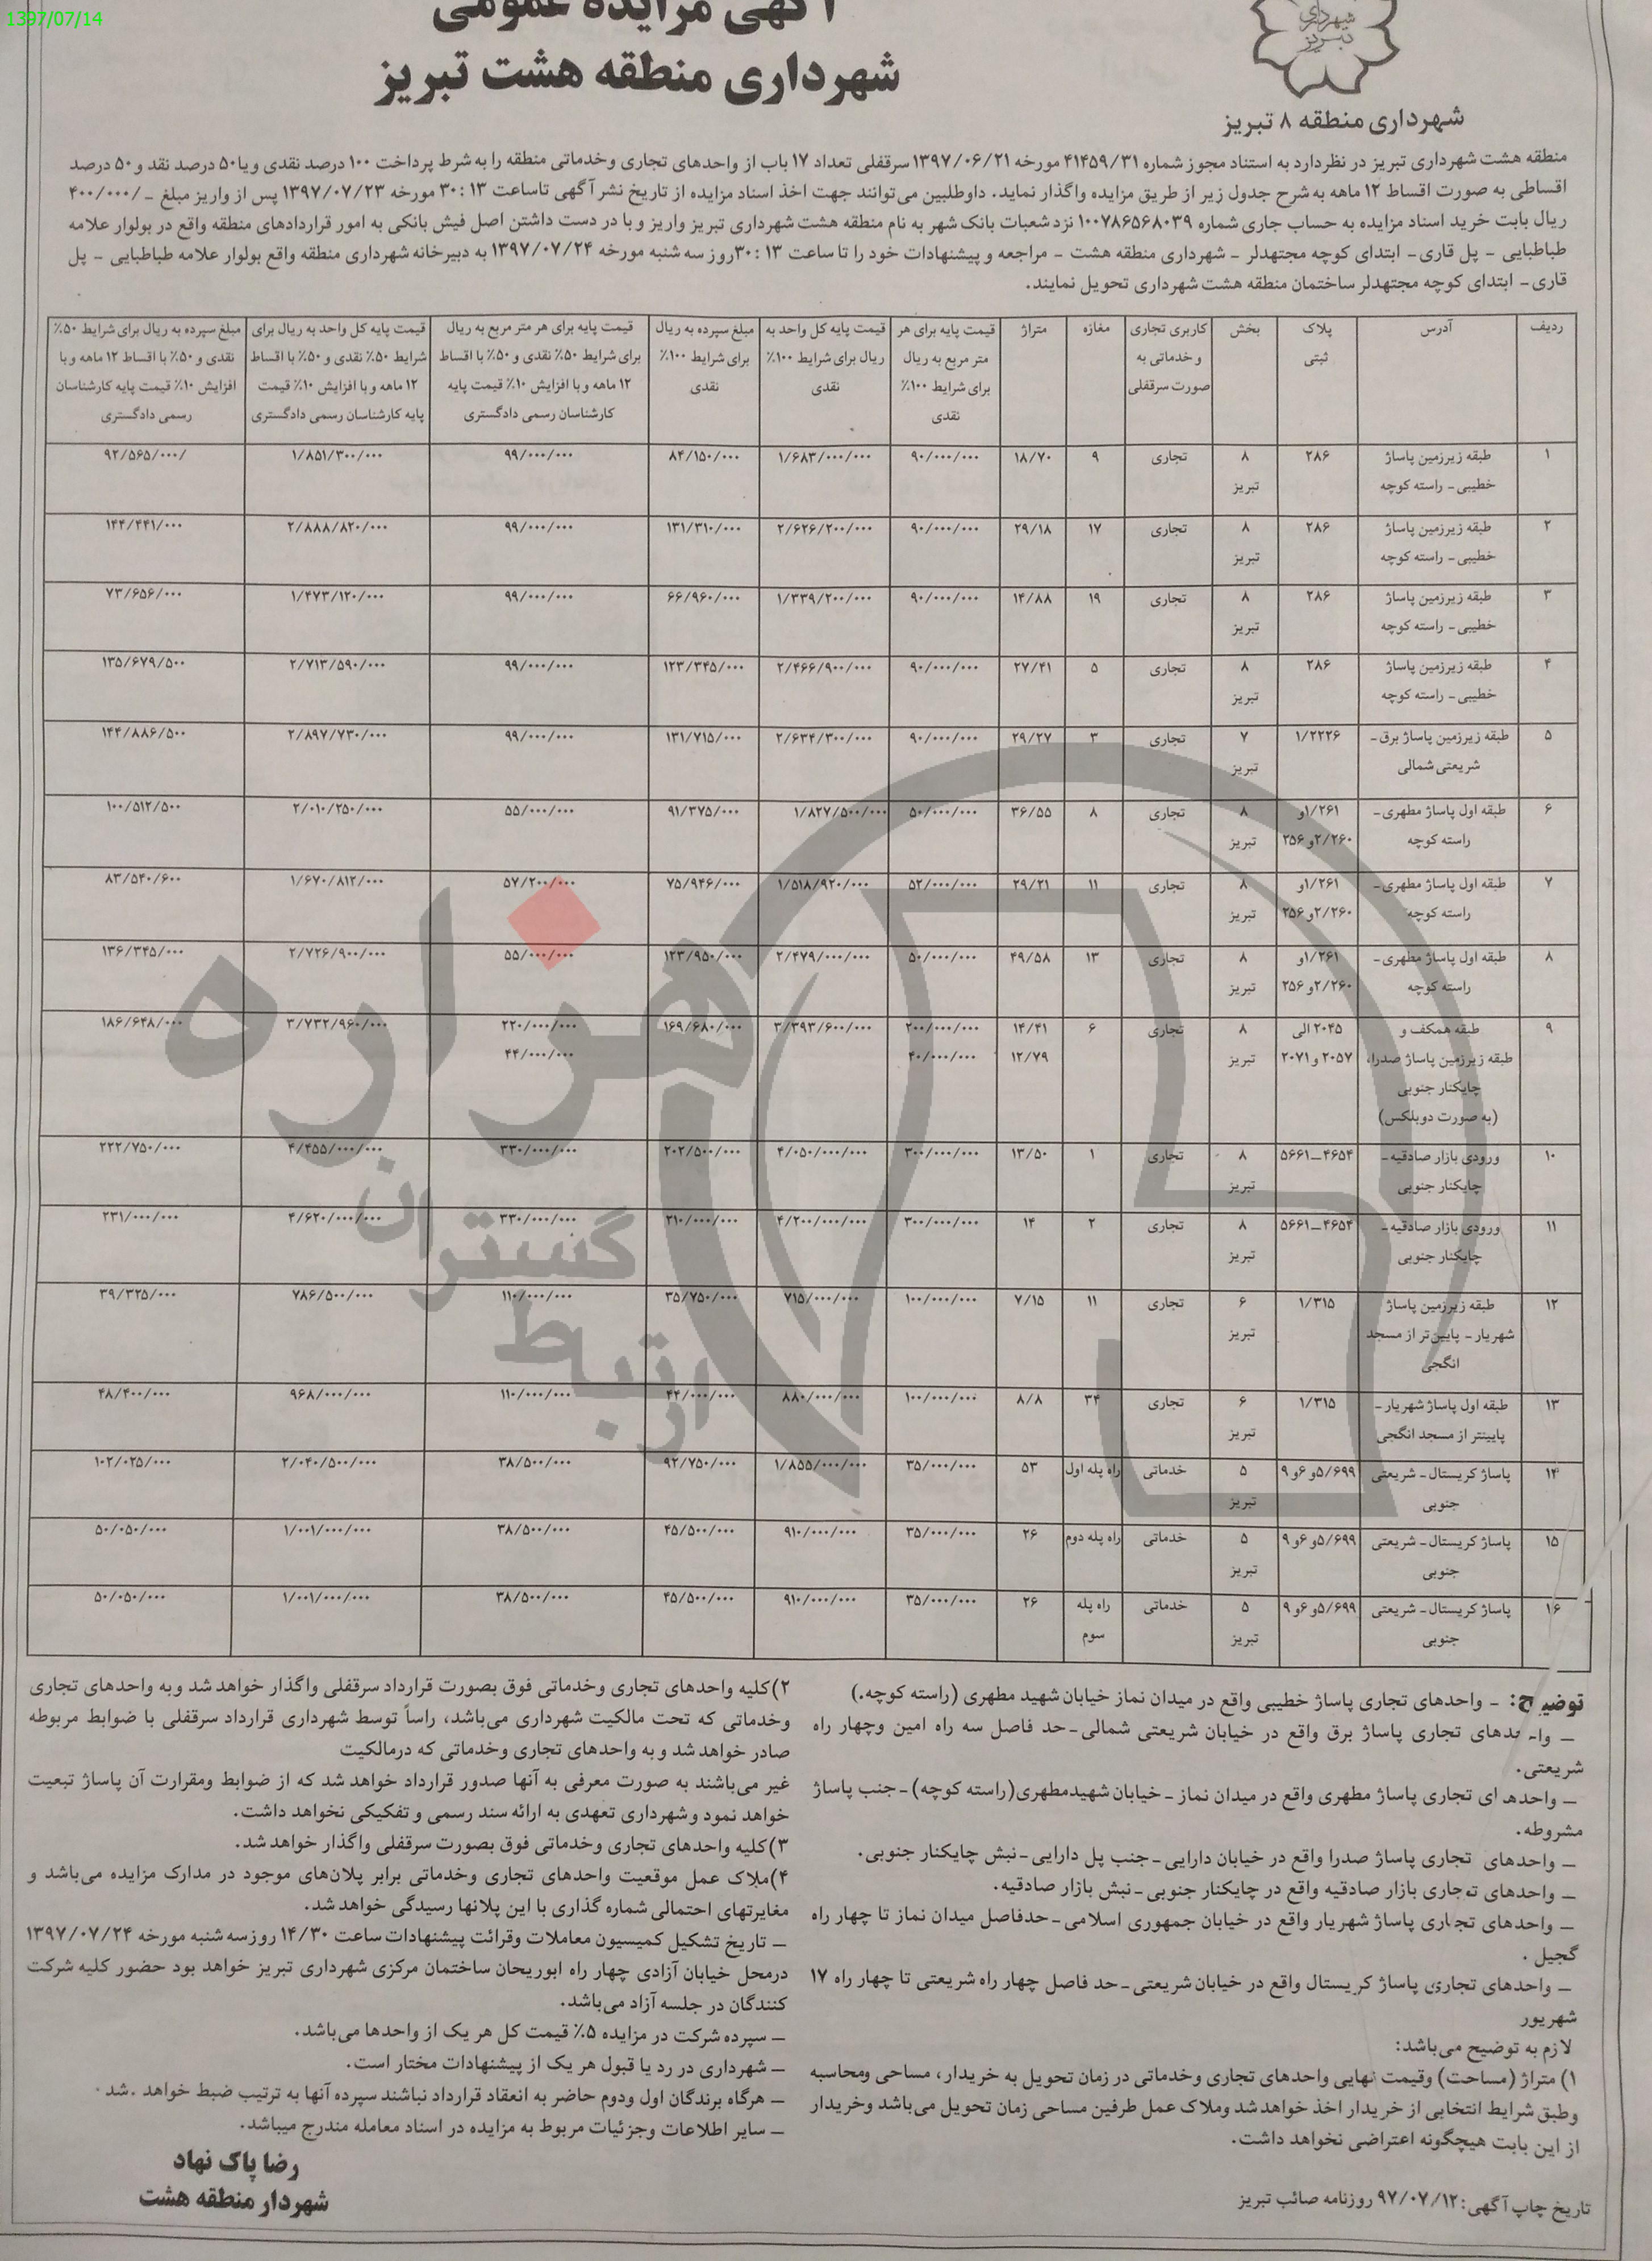 1397/07/14
آگهی مزایده عمومی
شهرداری منطقه هشت تبریز
شهرداری تبریز
شهرداری منطقه ۸ تبریز
منطقه هشت شهرداری تبریز در نظر دارد به استناد مجوز شماره ۴۱۴۵۹/۳۱ مورخه ۱۳۹۷/۰۶/۲۱ سرقفلی تعداد ۱۷ باب از واحدهای تجاری وخدماتی منطقه را به شرط پرداخت ۱۰۰ درصد نقدی ویا ۵۰ درصد نقد و ۵۰ درصد
اقساطی به صورت اقساط ۱۲ ماهه به شرح جدول زیر از طریق مزایده واگذار نماید. داوطلبین می‌توانند جهت اخذ اسناد مزایده از تاریخ نشر آگهی تا ساعت ۱۳ :۳۰ مورخه ۱۳۹۷/۰۷/۲۳ پس از واریز مبلغ ـ/۴۰۰/۰۰۰
ریال بابت خرید اسناد مزایده به حساب جاری شماره ۱۰۰۷۸۶۵۶۸۰۳۹ نزد شعبات بانک شهر به نام منطقه هشت شهرداری تبریز واریز و با در دست داشتن اصل فیش بانکی به امور قراردادهای منطقه واقع در بولوار علامه
طباطبایی - پل قاری- ابتدای کوچه مجتهدلر - شهرداری منطقه هشت - مراجعه و پیشنهادات خود را تا ساعت ۱۳ :۳۰روز سه شنبه مورخه ۱۳۹۷/۰۷/۲۴ به دبیرخانه شهرداری منطقه واقع بولوار علامه طباطبایی - پل
قاری- ابتدای کوچه مجتهدلر ساختمان منطقه هشت شهرداری تحویل نمایند.
ردیف | آدرس | پلاک ثبتی | بخش | کاربری تجاری و خدماتی به صورت سرقفلی | مغازه | متراژ | قیمت پایه برای هر متر مربع به ریال برای شرایط ۱۰۰٪ نقدی | قیمت پایه کل واحد به ریال برای شرایط ۱۰۰٪ نقدی | مبلغ سپرده به ریال برای شرایط ۱۰۰٪ نقدی | قیمت پایه برای هر متر مربع به ریال برای شرایط ۵۰٪ نقدی و ۵۰٪ با اقساط ۱۲ ماهه و با افزایش ۱۰٪ قیمت پایه کارشناسان رسمی دادگستری | قیمت پایه کل واحد به ریال برای شرایط ۵۰٪ نقدی و ۵۰٪ با اقساط ۱۲ ماهه و با افزایش ۱۰٪ قیمت پایه کارشناسان رسمی دادگستری | مبلغ سپرده به ریال برای شرایط ۵۰٪ نقدی و ۵۰٪ با اقساط ۱۲ ماهه و با افزایش ۱۰٪ قیمت پایه کارشناسان رسمی دادگستری
۱ | طبقه زیرزمین پاساژ خطیبی - راسته کوچه | ۲۸۶ | ۸ تبریز | تجاری | ۹ | ۱۸/۷۰ | ۹۰/۰۰۰/۰۰۰ | ۱/۶۸۳/۰۰۰/۰۰۰ | ۸۴/۱۵۰/۰۰۰ | ۹۹/۰۰۰/۰۰۰ | ۱/۸۵۱/۳۰۰/۰۰۰ | ۹۲/۵۶۵/۰۰۰/
۲ | طبقه زیرزمین پاساژ خطیبی - راسته کوچه | ۲۸۶ | ۸ تبریز | تجاری | ۱۷ | ۲۹/۱۸ | ۹۰/۰۰۰/۰۰۰ | ۲/۶۲۶/۲۰۰/۰۰۰ | ۱۳۱/۳۱۰/۰۰۰ | ۹۹/۰۰۰/۰۰۰ | ۲/۸۸۸/۸۲۰/۰۰۰ | ۱۴۴/۴۴۱/۰۰۰
۳ | طبقه زیرزمین پاساژ خطیبی - راسته کوچه | ۲۸۶ | ۸ تبریز | تجاری | ۱۹ | ۱۴/۸۸ | ۹۰/۰۰۰/۰۰۰ | ۱/۳۳۹/۲۰۰/۰۰۰ | ۶۶/۹۶۰/۰۰۰ | ۹۹/۰۰۰/۰۰۰ | ۱/۴۷۳/۱۲۰/۰۰۰ | ۷۳/۶۵۶/۰۰۰
۴ | طبقه زیرزمین پاساژ خطیبی - راسته کوچه | ۲۸۶ | ۸ تبریز | تجاری | ۵ | ۲۷/۴۱ | ۹۰/۰۰۰/۰۰۰ | ۲/۴۶۶/۹۰۰/۰۰۰ | ۱۲۳/۳۴۵/۰۰۰ | ۹۹/۰۰۰/۰۰۰ | ۲/۷۱۳/۵۹۰/۰۰۰ | ۱۳۵/۶۷۹/۵۰۰
۵ | طبقه زیرزمین پاساژ برق - شریعتی شمالی | ۱/۲۲۲۶ | ۷ تبریز | تجاری | ۳ | ۲۹/۲۷ | ۹۰/۰۰۰/۰۰۰ | ۲/۶۳۴/۳۰۰/۰۰۰ | ۱۳۱/۷۱۵/۰۰۰ | ۹۹/۰۰۰/۰۰۰ | ۲/۸۹۷/۷۳۰/۰۰۰ | ۱۴۴/۸۸۶/۵۰۰
۶ | طبقه اول پاساژ مطهری - راسته کوچه | ۱/۲۶۱و ۲/۲۶۰و ۲۵۶ | ۸ تبریز | تجاری | ۸ | ۳۶/۵۵ | ۵۰/۰۰۰/۰۰۰ | ۱/۸۲۷/۵۰۰/۰۰۰ | ۹۱/۳۷۵/۰۰۰ | ۵۵/۰۰۰/۰۰۰ | ۲/۰۱۰/۲۵۰/۰۰۰ | ۱۰۰/۵۱۲/۵۰۰
۷ | طبقه اول پاساژ مطهری - راسته کوچه | ۱/۲۶۱و ۲/۲۶۰و ۲۵۶ | ۸ تبریز | تجاری | ۱۱ | ۲۹/۲۱ | ۵۲/۰۰۰/۰۰۰ | ۱/۵۱۸/۹۲۰/۰۰۰ | ۷۵/۹۴۶/۰۰۰ | ۵۷/۲۰۰/۰۰۰ | ۱/۶۷۰/۸۱۲/۰۰۰ | ۸۳/۵۴۰/۶۰۰
۸ | طبقه اول پاساژ مطهری - راسته کوچه | ۱/۲۶۱و ۲/۲۶۰و ۲۵۶ | ۸ تبریز | تجاری | ۱۳ | ۴۹/۵۸ | ۵۰/۰۰۰/۰۰۰ | ۲/۴۷۹/۰۰۰/۰۰۰ | ۱۲۳/۹۵۰/۰۰۰ | ۵۵/۰۰۰/۰۰۰ | ۲/۷۲۶/۹۰۰/۰۰۰ | ۱۳۶/۳۴۵/۰۰۰
۹ | طبقه همکف و طبقه زیرزمین پاساژ صدرا، چایکنار جنوبی (به صورت دوبلکس) | ۲۰۴۵ الی ۲۰۵۷ و ۲۰۷۱ | ۸ تبریز | تجاری | ۶ | ۱۴/۴۱ ۱۲/۷۹ | ۲۰۰/۰۰۰/۰۰۰ ۴۰/۰۰۰/۰۰۰ | ۳/۳۹۳/۶۰۰/۰۰۰ | ۱۶۹/۶۸۰/۰۰۰ | ۲۲۰/۰۰۰/۰۰۰ ۴۴/۰۰۰/۰۰۰ | ۳/۷۳۲/۹۶۰/۰۰۰ | ۱۸۶/۶۴۸/۰۰۰
۱۰ | ورودی بازار صادقیه - چایکنار جنوبی | ۴۶۵۴ــ۵۶۶۱ | ۸ تبریز | تجاری | ۱ | ۱۳/۵۰ | ۳۰۰/۰۰۰/۰۰۰ | ۴/۰۵۰/۰۰۰/۰۰۰ | ۲۰۲/۵۰۰/۰۰۰ | ۳۳۰/۰۰۰/۰۰۰ | ۴/۴۵۵/۰۰۰/۰۰۰ | ۲۲۲/۷۵۰/۰۰۰
۱۱ | ورودی بازار صادقیه - چایکنار جنوبی | ۴۶۵۴ــ۵۶۶۱ | ۸ تبریز | تجاری | ۲ | ۱۴ | ۳۰۰/۰۰۰/۰۰۰ | ۴/۲۰۰/۰۰۰/۰۰۰ | ۲۱۰/۰۰۰/۰۰۰ | ۳۳۰/۰۰۰/۰۰۰ | ۴/۶۲۰/۰۰۰/۰۰۰ | ۲۳۱/۰۰۰/۰۰۰
۱۲ | طبقه زیرزمین پاساژ شهریار - پایین‌تر از مسجد انگجی | ۱/۳۱۵ | ۶ تبریز | تجاری | ۱۱ | ۷/۱۵ | ۱۰۰/۰۰۰/۰۰۰ | ۷۱۵/۰۰۰/۰۰۰ | ۳۵/۷۵۰/۰۰۰ | ۱۱۰/۰۰۰/۰۰۰ | ۷۸۶/۵۰۰/۰۰۰ | ۳۹/۳۲۵/۰۰۰
۱۳ | طبقه اول پاساژ شهریار - پایینتر از مسجد انگجی | ۱/۳۱۵ | ۶ تبریز | تجاری | ۳۴ | ۸/۸ | ۱۰۰/۰۰۰/۰۰۰ | ۸۸۰/۰۰۰/۰۰۰ | ۴۴/۰۰۰/۰۰۰ | ۱۱۰/۰۰۰/۰۰۰ | ۹۶۸/۰۰۰/۰۰۰ | ۴۸/۴۰۰/۰۰۰
۱۴ | پاساژ کریستال - شریعتی جنوبی | ۵/۶۹۹و ۶و ۹ | ۵ تبریز | خدماتی | راه پله اول | ۵۳ | ۳۵/۰۰۰/۰۰۰ | ۱/۸۵۵/۰۰۰/۰۰۰ | ۹۲/۷۵۰/۰۰۰ | ۳۸/۵۰۰/۰۰۰ | ۲/۰۴۰/۵۰۰/۰۰۰ | ۱۰۲/۰۲۵/۰۰۰
۱۵ | پاساژ کریستال - شریعتی جنوبی | ۵/۶۹۹و ۶و ۹ | ۵ تبریز | خدماتی | راه پله دوم | ۲۶ | ۳۵/۰۰۰/۰۰۰ | ۹۱۰/۰۰۰/۰۰۰ | ۴۵/۵۰۰/۰۰۰ | ۳۸/۵۰۰/۰۰۰ | ۱/۰۰۱/۰۰۰/۰۰۰ | ۵۰/۰۵۰/۰۰۰
۱۶ | پاساژ کریستال - شریعتی جنوبی | ۵/۶۹۹و ۶و ۹ | ۵ تبریز | خدماتی | راه پله سوم | ۲۶ | ۳۵/۰۰۰/۰۰۰ | ۹۱۰/۰۰۰/۰۰۰ | ۴۵/۵۰۰/۰۰۰ | ۳۸/۵۰۰/۰۰۰ | ۱/۰۰۱/۰۰۰/۰۰۰ | ۵۰/۰۵۰/۰۰۰
هزاره
گستران
ارتباط
توضیح: - واحدهای تجاری پاساژ خطیبی واقع در میدان نماز خیابان شهید مطهری (راسته کوچه.)
ـ واحدهای تجاری پاساژ برق واقع در خیابان شریعتی شمالی-حد فاصل سه راه امین وچهار راه
شریعتی.
ـ واحدهای تجاری پاساژ مطهری واقع در میدان نماز ـ خیابان شهیدمطهری(راسته کوچه)ـ جنب پاساژ
مشروطه.
ـ واحدهای تجاری پاساژ صدرا واقع در خیابان دارایی ـ جنب پل دارایی ـ نبش چایکنار جنوبی.
ـ واحدهای تجاری بازار صادقیه واقع در چایکنار جنوبی ـ نبش بازار صادقیه.
ـ واحدهای تجاری پاساژ شهریار واقع در خیابان جمهوری اسلامی ـ حدفاصل میدان نماز تا چهار راه
گجیل .
ـ واحدهای تجاری پاساژ کریستال واقع در خیابان شریعتی ـ حد فاصل چهار راه شریعتی تا چهار راه ۱۷
شهریور
لازم به توضیح می‌باشد:
۱) متراژ (مساحت) وقیمت نهایی واحدهای تجاری وخدماتی در زمان تحویل به خریدار، مساحی ومحاسبه
وطبق شرایط انتخابی از خریدار اخذ خواهد شد وملاک عمل طرفین مساحی زمان تحویل می‌باشد وخریدار
از این بابت هیچگونه اعتراضی نخواهد داشت.
تاریخ چاپ آگهی: ۹۷/۰۷/۱۲ روزنامه صائب تبریز
۲)کلیه واحدهای تجاری وخدماتی فوق بصورت قرارداد سرقفلی واگذار خواهد شد وبه واحدهای تجاری
وخدماتی که تحت مالکیت شهرداری می‌باشد، راساً توسط شهرداری قرارداد سرقفلی با ضوابط مربوطه
صادر خواهد شد و به واحدهای تجاری وخدماتی که درمالکیت
غیر می‌باشند به صورت معرفی به آنها صدور قرارداد خواهد شد که از ضوابط ومقرارت آن پاساژ تبعیت
خواهد نمود وشهرداری تعهدی به ارائه سند رسمی و تفکیکی نخواهد داشت.
۳)کلیه واحدهای تجاری وخدماتی فوق بصورت سرقفلی واگذار خواهد شد.
۴)ملاک عمل موقعیت واحدهای تجاری وخدماتی برابر پلان‌های موجود در مدارک مزایده می‌باشد و
مغایرتهای احتمالی شماره گذاری با این پلانها رسیدگی خواهد شد.
ـ تاریخ تشکیل کمیسیون معاملات وقرائت پیشنهادات ساعت ۱۴/۳۰ روزسه شنبه مورخه ۱۳۹۷/۰۷/۲۴
درمحل خیابان آزادی چهار راه ابوریحان ساختمان مرکزی شهرداری تبریز خواهد بود حضور کلیه شرکت
کنندگان در جلسه آزاد می‌باشد.
ـ سپرده شرکت در مزایده ۵٪ قیمت کل هر یک از واحدها می‌باشد.
ـ شهرداری در رد یا قبول هر یک از پیشنهادات مختار است.
ـ هرگاه برندگان اول ودوم حاضر به انعقاد قرارداد نباشند سپرده آنها به ترتیب ضبط خواهد شد.
ـ سایر اطلاعات وجزئیات مربوط به مزایده در اسناد معامله مندرج میباشد.
رضا پاک نهاد
شهردار منطقه هشت